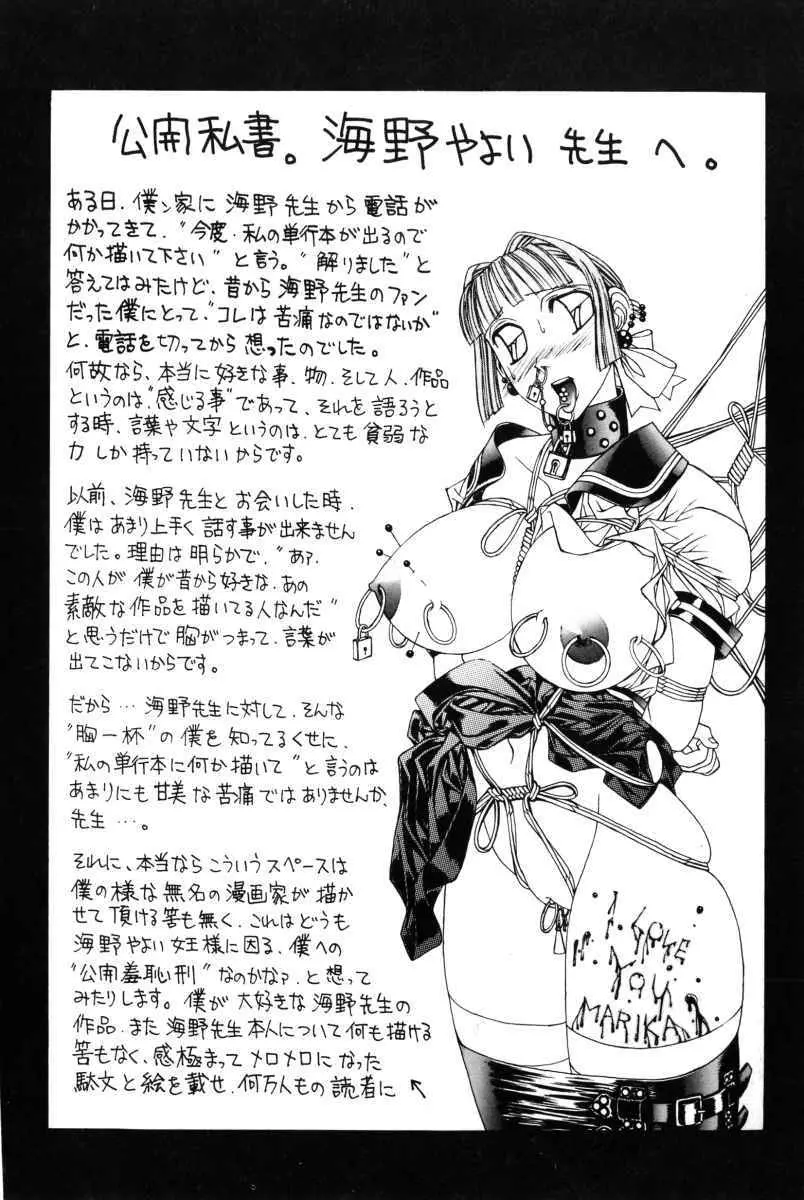 公開私書。海野やよい先生へ。
ある日、僕ン家に海野先生から電話が
かかってきて、“今度、私の単行本が出るので
何か描いて下さい”と言う。“解りました”と
答えてはみたけど、昔から海野先生のファン
だった僕にとって、“コレは苦痛なのではないか”
と、電話を切ってから想ったのでした。
何故なら、本当に好きな事、物、そして人、作品
というのは“感じる事”であって、それを語ろうと
する時、言葉や文字というのは、とても貧弱な
力しか持っていないからです。
以前、海野先生とお会いした時、
僕はあまり上手く話す事が出来ません
でした。理由は明らかで、“あァ、
この人が僕が昔から好きな、あの
素敵な作品を描いてる人なんだ”
と思うだけで胸がつまって、言葉が
出てこないからです。
だから…海野先生に対して、そんな
“胸一杯”の僕を知ってるくせに、
“私の単行本に何か描いて”と言うのは
あまりにも甘美な苦痛ではありませんか、
先生…。
それに、本当ならこういうスペースは
僕の様な無名の漫画家が描か
せて頂ける筈も無く、これはどうも
海野やよい女王様に因る、僕への
“公開羞恥刑”なのかなァ、と想って
みたりします。僕が大好きな海野先生の
作品、また海野先生本人について何も描ける
筈もなく、感極まってメロメロになった
駄文と絵を載せ、何万人もの読者に
I LOVE
YOU
MARIKA